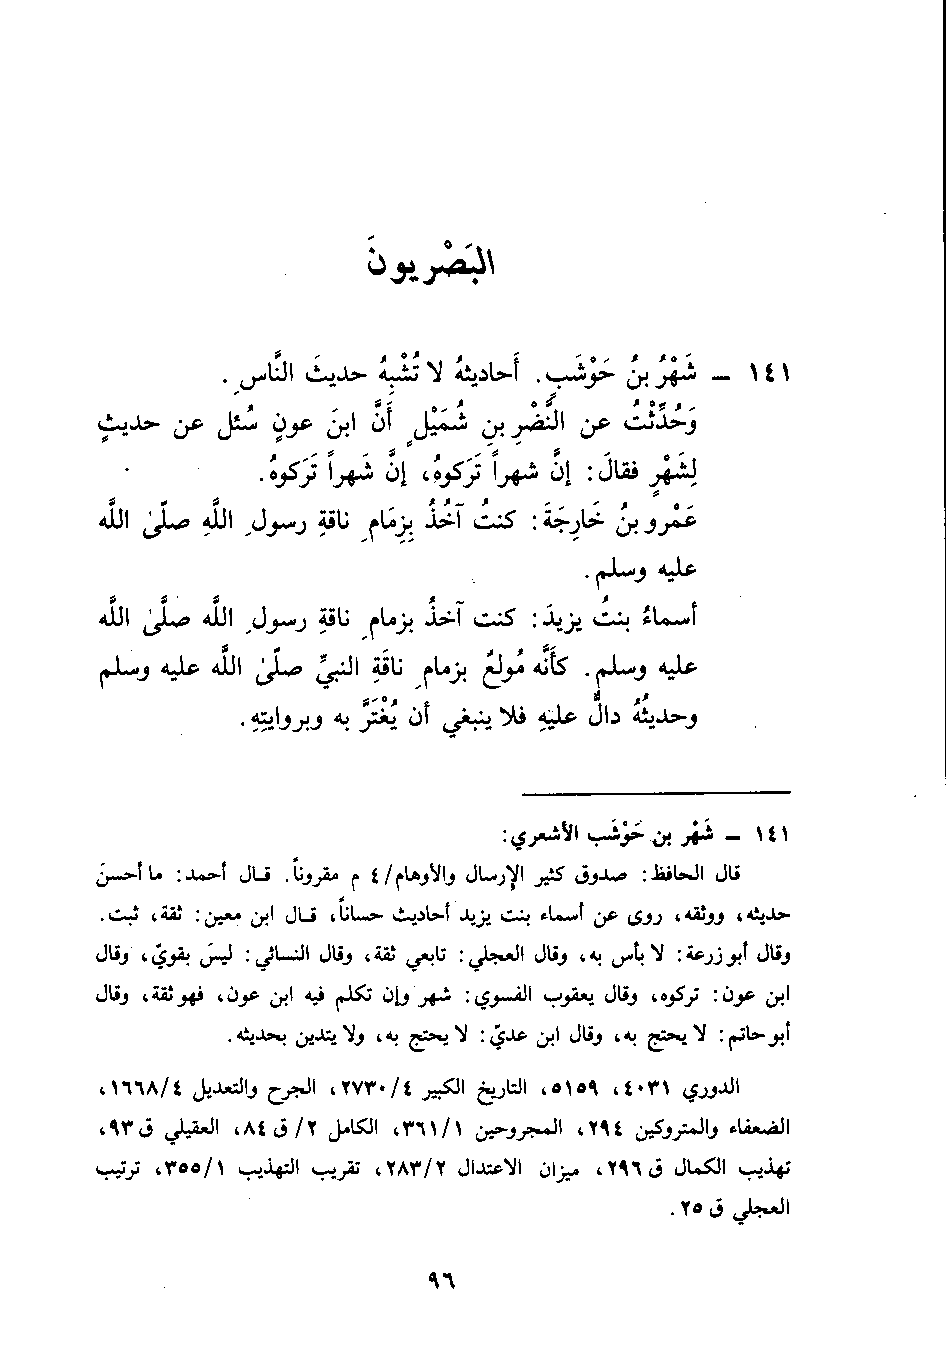 البَصْريونَ
١٤١ – شَهْرُ بنُ حَوْشَبٍ. أَحاديثهُ لا تُشْبِهُ حديثَ النَّاسِ.
وَحُدِّثْتُ عن النَّضْرِ بنِ شُمَيْلٍ أَنَّ ابنَ عونٍ سُئل عن حديثٍ
لِشَهْرٍ فقالَ: إنَّ شهراً تَرَكوهُ، إنَّ شَهراً تَرَكوهُ.
عَمْرو بنُ خَارِجَةَ: كنتُ آخُذُ بِزِمَامِ ناقةِ رسولِ اللَّهِ صلّىٰ اللَّه
عليه وسلم.
أسماءُ بنتُ يزيدَ: كنت آخذُ بزمامِ ناقةِ رسولِ اللَّه صلَّىٰ اللَّه
عليه وسلم. كأنَّه مُولعٌ بزمامِ ناقَةِ النبيِّ صلّىٰ اللَّه عليه وسلم
وحديثُهُ دالٌّ عليهِ فلا ينبغي أن يُغْتَرَّ به وبروايتِهِ.
١٤١ – شَهْر بن حَوْشَب الأشعري:
قال الحافظ: صدوق كثير الإرسال والأوهام/٤ م مقروناً. قال أحمد: ما أحسنَ
حديثه، ووثقه، روى عن أسماء بنت يزيد أحاديث حساناً، قال ابن معين: ثقة، ثبت.
وقال أبو زرعة: لا بأس به، وقال العجلي: تابعي ثقة، وقال النسائي: ليسَ بقويّ، وقال
ابن عون: تركوه، وقال يعقوب الفسوي: شهر وإن تكلم فيه ابن عون، فهو ثقة، وقال
أبو حاتم: لا يحتج به، وقال ابن عديّ: لا يحتج به، ولا يتدين بحديثه.
الدوري ٤٠٣١، ٥١٥٩، التاريخ الكبير ٢٧٣٠/٤، الجرح والتعديل ١٦٦٨/٤،
الضعفاء والمتروكين ٢٩٤، المجروحين ٣٦١/١، الكامل ٢/ق ٨٤، العقيلي ق ٩٣،
تهذيب الكمال ق ٢٩٦، ميزان الاعتدال ٢٨٣/٢، تقريب التهذيب ٣٥٥/١، ترتيب
العجلي ق ٢٥.
٩٦